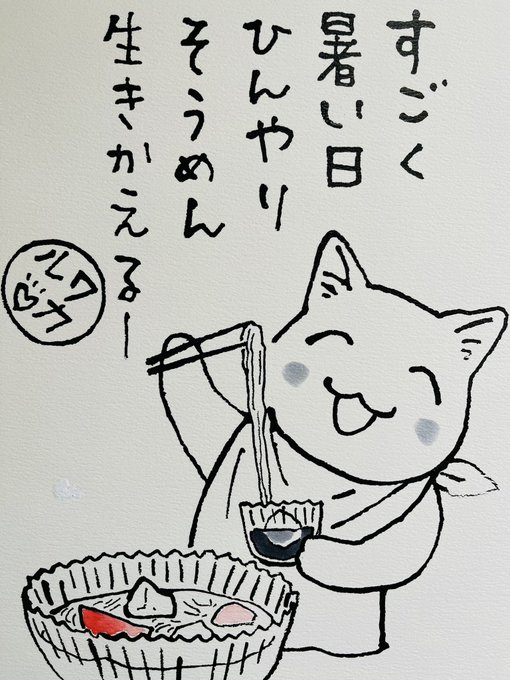 すごく
暑い日
ひんやり
そうめん
生きかえるー